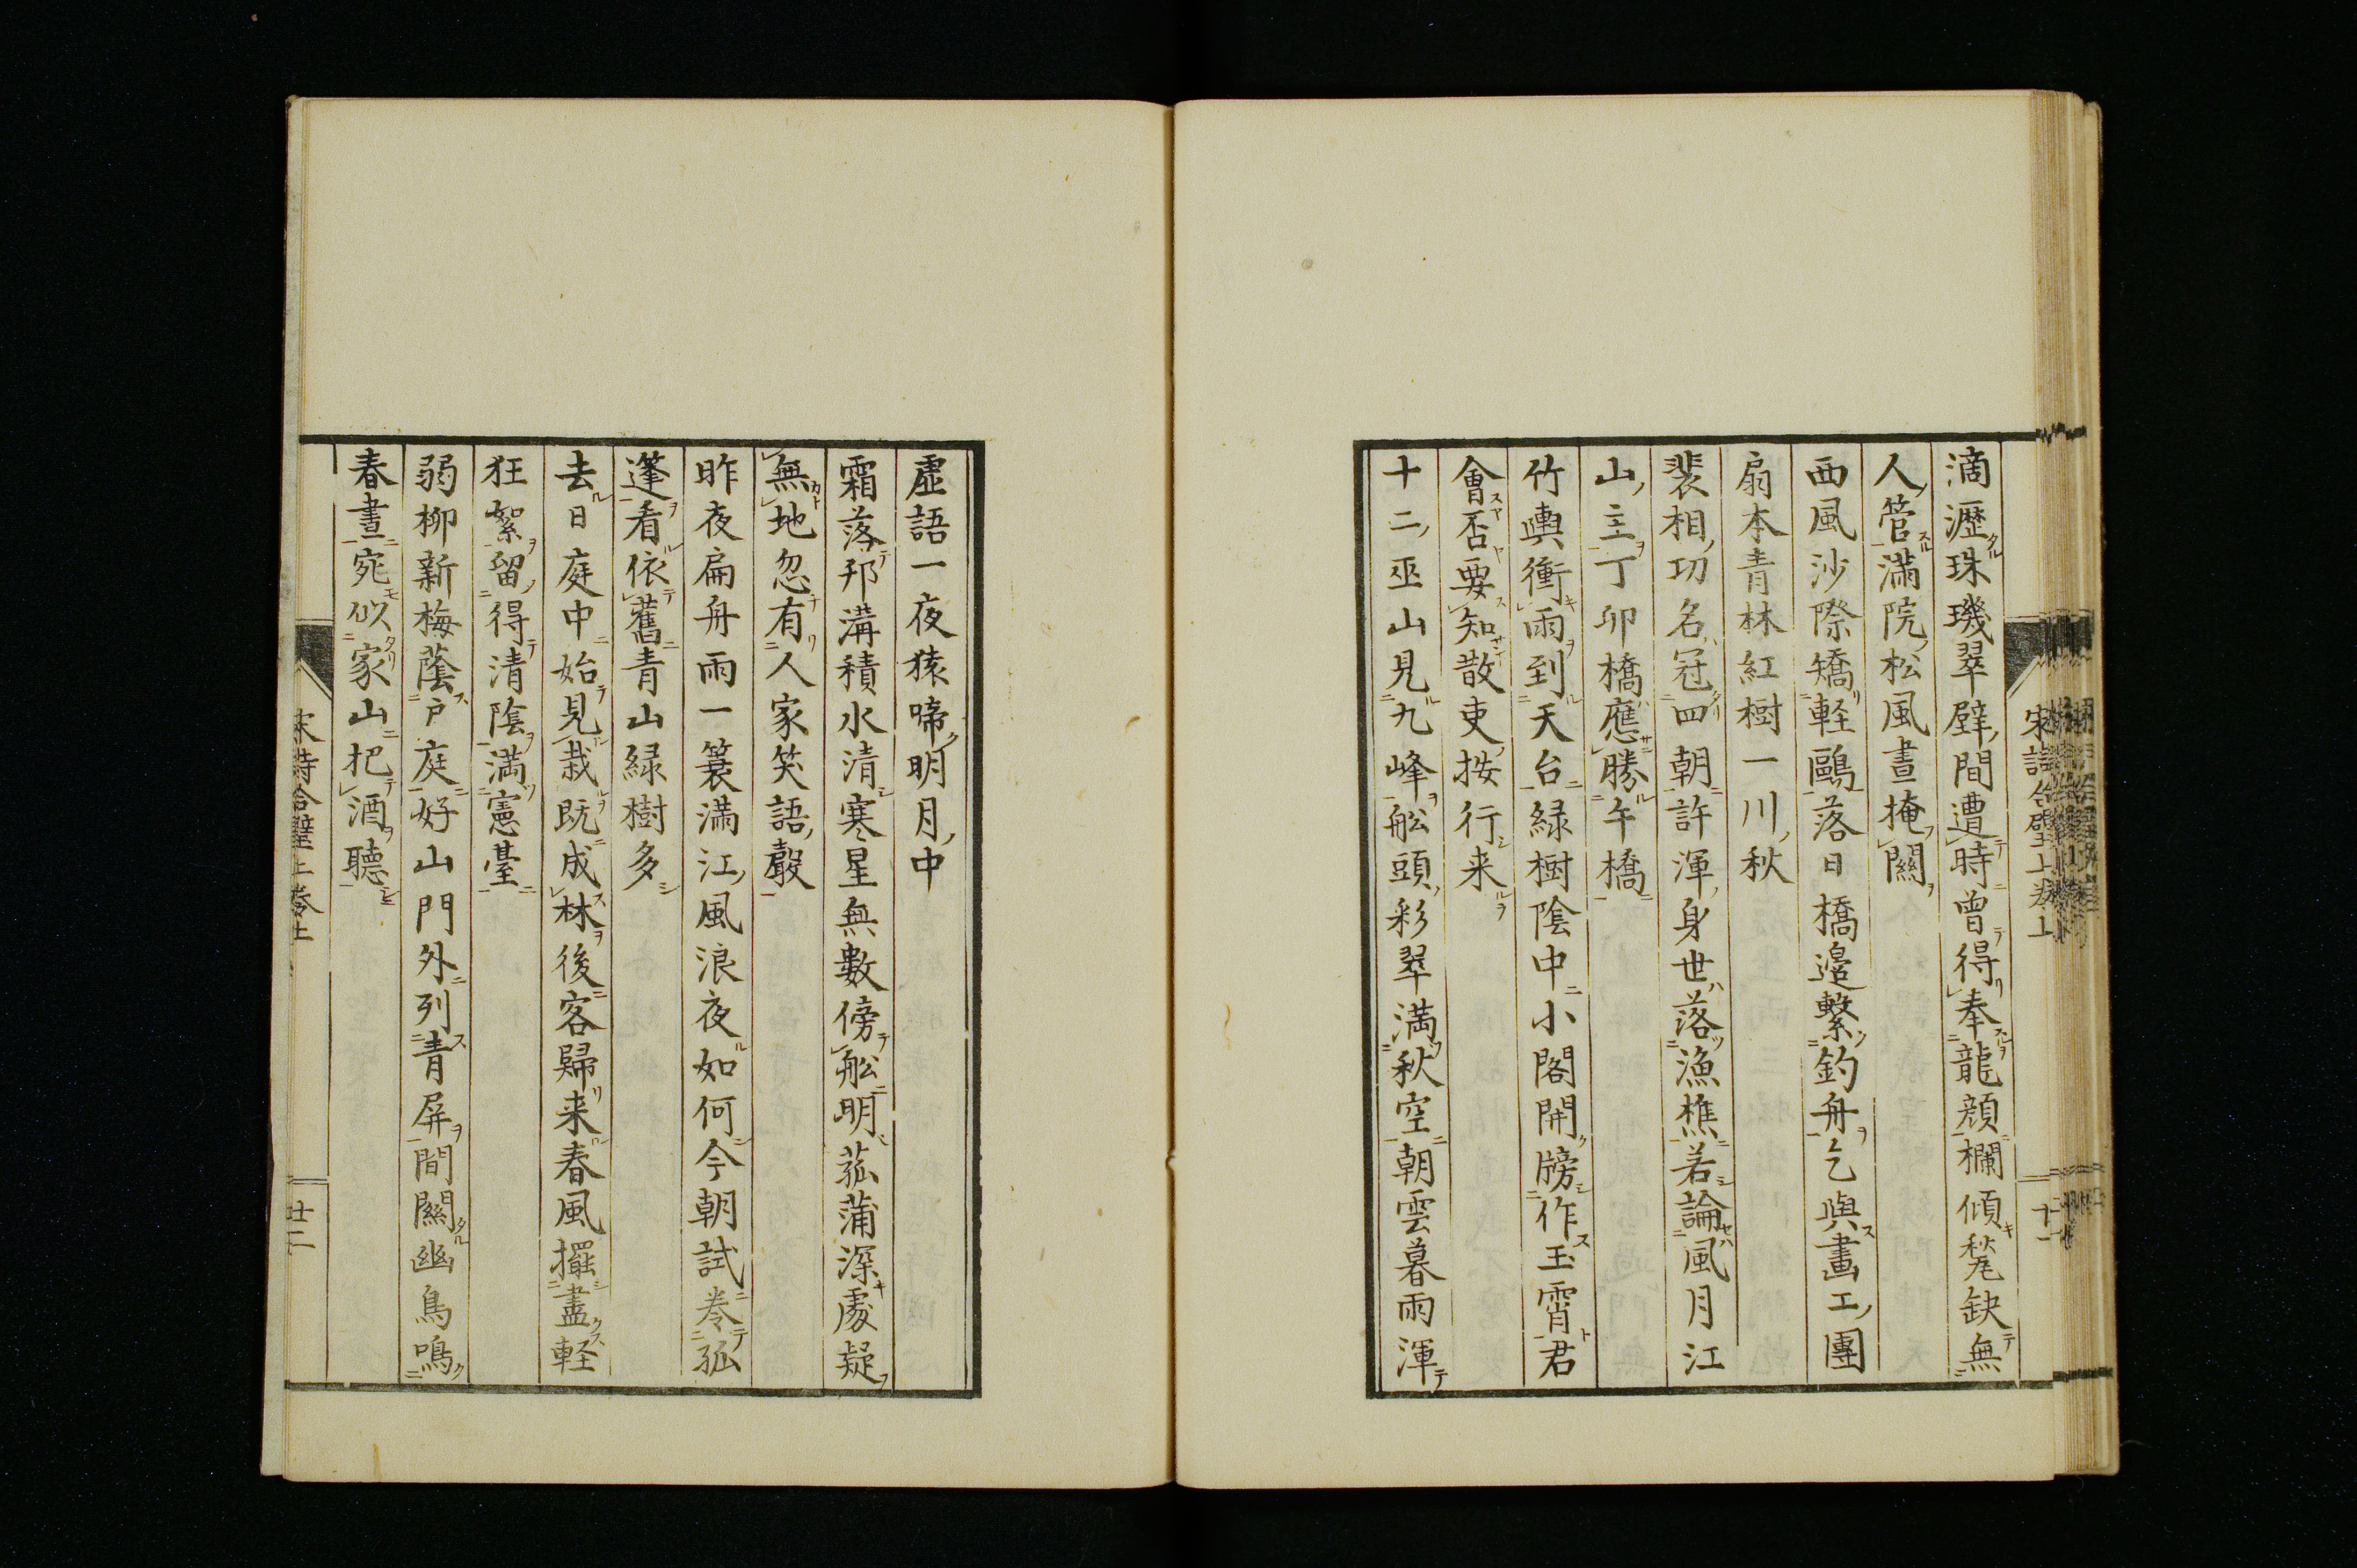 滴瀝珠璣翠壁間遭時曾得奉龍顔欄傾甃缺無
人管滿院松風晝掩關
西風沙際矯軽鷗落日橋邊繋釣舟乞與畫工團
扇本青林紅樹一川秋
裴相功名冠四朝許渾身世落漁樵若論風月江
山主丁卯橋應勝午橋
竹輿衝雨到天台緑樹陰中小閣開牓作玉霄君
會否要知散吏按行来
十二巫山見九峰舩頭彩翠満秋空朝雲暮雨渾
虚語一夜猿啼明月中
霜落邗溝積水清寒星無數傍舩明菰蒲深處疑
無地忽有人家笑語聲
昨夜扁舟雨一蓑満江風浪夜如何今朝試巻孤
篷看依舊青山緑樹多
去日庭中始見栽既成林後客歸来春風擺盡軽
狂絮留得清陰満憲臺
弱柳新梅蔭戸庭好山門外列青屏間關幽鳥鳴
春晝宛似家山把酒聽
宋詩合璧上巻上
廿二